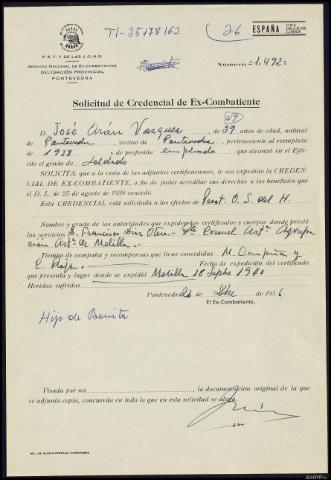 TI-35178163
26
ESPAÑA
F. E. T. Y DE LAS J. O. N. S.
SERVICIO NACIONAL DE EX-COMBATIENTES
DELEGACIÓN PROVINCIAL
PONTEVEDRA
Número: 1.492=
Solicitud de Credencial de Ex-Combatiente
D. José Arán Vazquez de 39 años de edad, natural
de Pontevedra, vecino de Pontevedra, perteneciente al reemplazo
de 1938 y de profesión empleado que alcanzó en el Ejér-
cito el grado de Soldado
SOLICITA: que a la vista de las adjuntas certificaciones, le sea expedida la CREDEN-
CIAL DE EX-COMBATIENTE, a fin de poder acreditar sus derechos a los beneficios que
el D. L. de 25 de agosto de 1939 concede.
Esta CREDENCIAL está solicitada a los efectos de Prest. O. S. del H.
Nombre y grado de las autoridades que expidieron los certificados y cuerpos donde prestó
los servicios D. Francisco Oten.- Coronel Artª Agrupa
cion Artª de Melilla.-
Tiempo de campaña y recompensas que tiene concedidas M. Campaña y
C. Roja. Fecha de expedición del certificado
que presenta y lugar donde se expidió Melilla 18 Sepbre 1940
Heridas sufridas
Pontevedra, de 1956
El Ex-Combatiente,
Hijo de Benita
Visada por mí la documentación original de la que
se adjunta copia, concuerda en todo lo que en esta solicitud se alega.
AHPPo